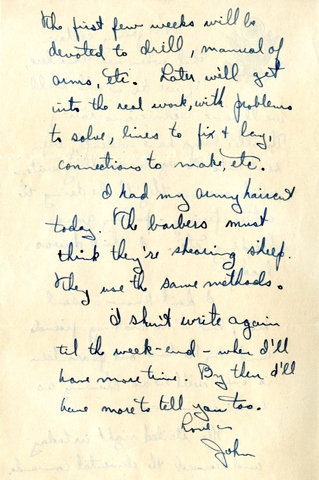 The first few weeks will be
devoted to drill, manual of
arms, etc. Later we'll get
into the real work, with problems
to solve, lines to fix + lay,
connections to make, etc.
I had my army haircut
today. The barbers must
think they're shearing sheep.
They use the same methods.
I shan't write again
til the week-end - when I'll
have more time. By then I'll
have more to tell you too.
Love -
John